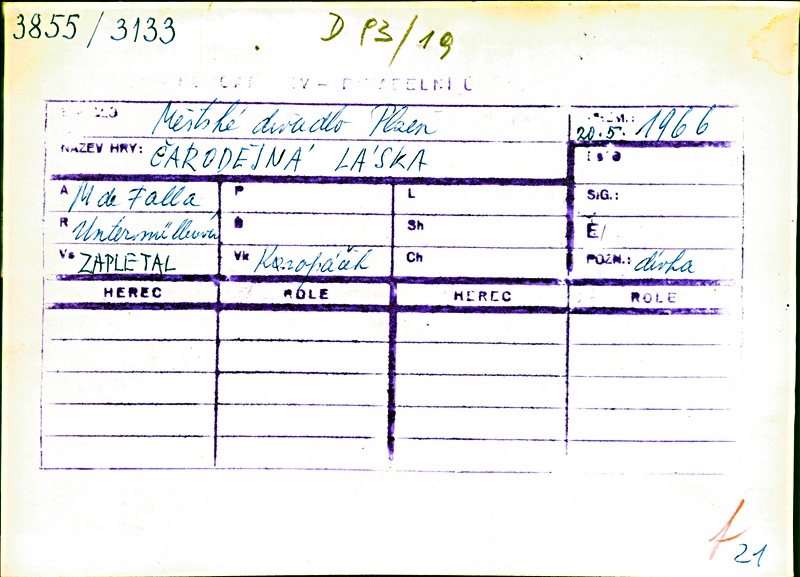 3855/3133 D P3/19
Městské divadlo Plzeň
20.5. 1966
NÁZEV HRY: ČARODĚJNÁ LÁSKA
A M de Falla P L SIG.:
R Untermüllerová B Sh É/
Vs ZAPLETAL Vk Koropáčk Ch POZN.: dívka
HEREC ROLE HEREC ROLE
21